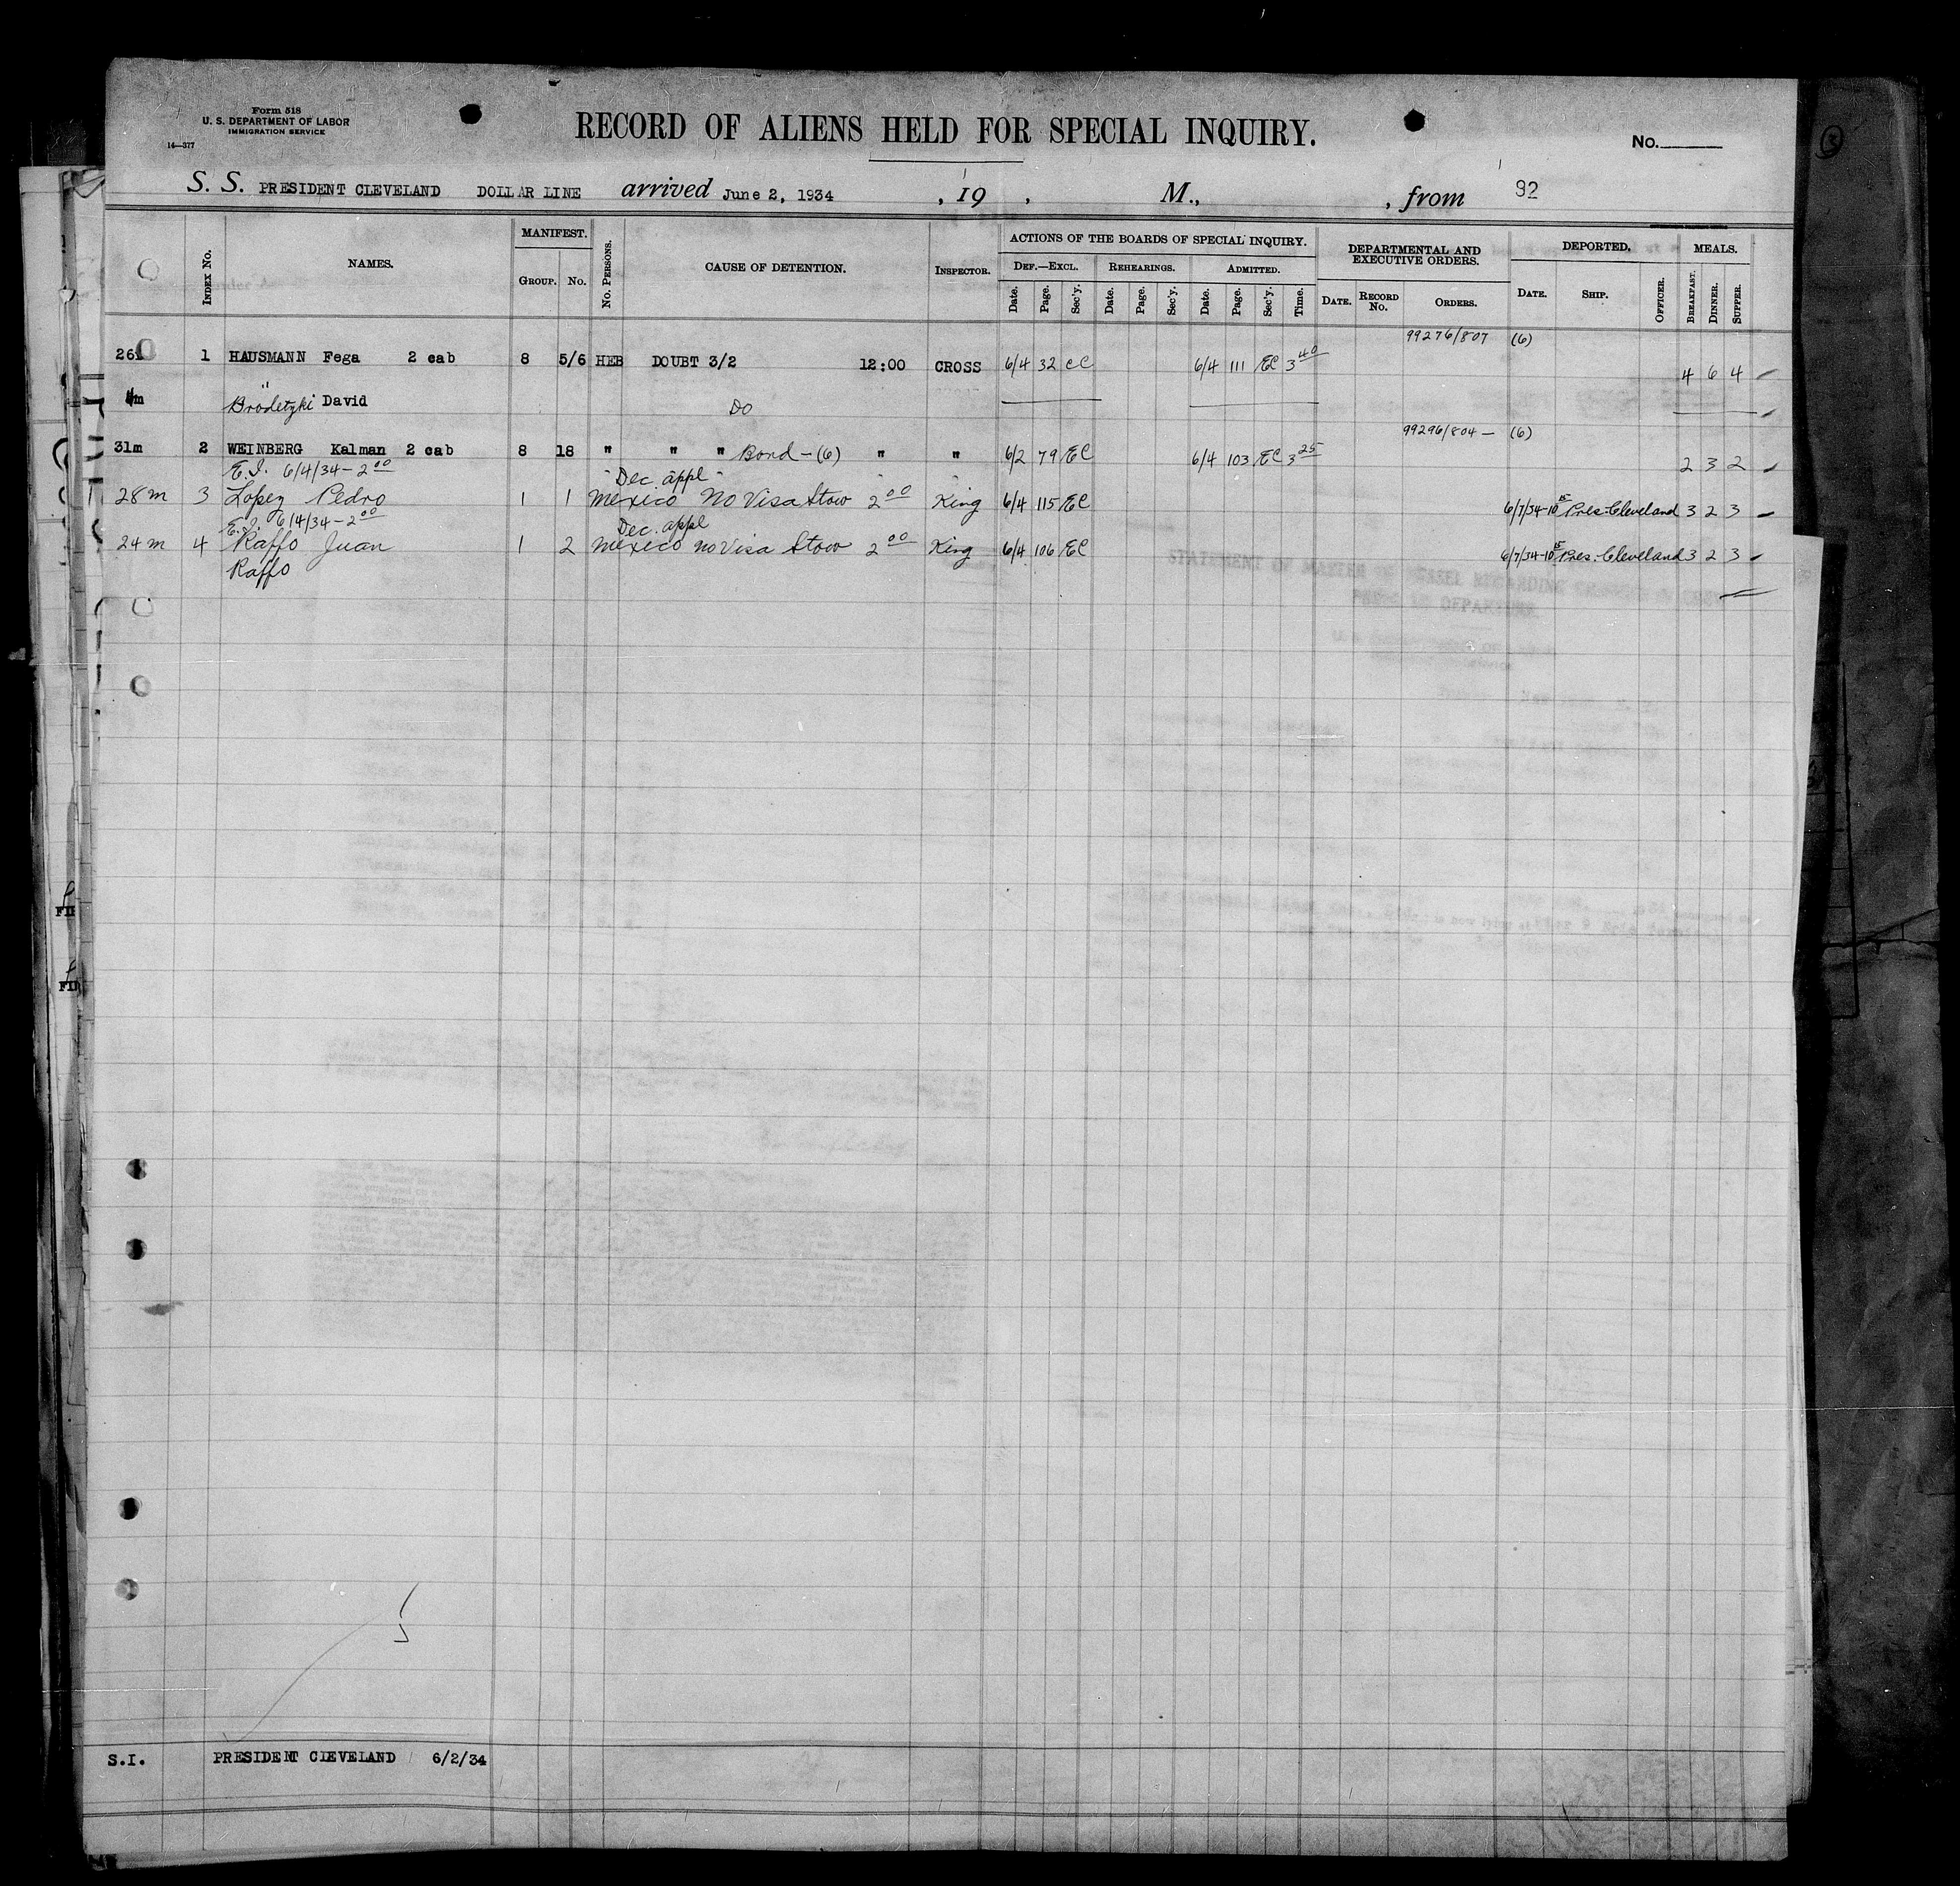 Form 518
U. S. DEPARTMENT OF LABOR
IMMIGRATION SERVICE
14—377
RECORD OF ALIENS HELD FOR SPECIAL INQUIRY.
No.
3
S. S. PRESIDENT CLEVELAND DOLLAR LINE arrived June 2, 1934 , 19 , M., , from 92
INDEX No. NAMES. MANIFEST. GROUP. No. No. PERSONS. CAUSE OF DETENTION. INSPECTOR. ACTIONS OF THE BOARDS OF SPECIAL INQUIRY. DEPARTMENTAL AND EXECUTIVE ORDERS. DEPORTED. MEALS.
DEF.—EXCL. REHEARINGS. ADMITTED.
Date. Page. Sec'y. Date. Page. Sec'y. Date. Page. Sec'y. Time. DATE. RECORD No. ORDERS. DATE. SHIP. OFFICER. BREAKFAST. DINNER. SUPPER.
99276/807 (6)
26 1 HAUSMANN Fega 2 cab 8 5/6 HEB DOUBT 3/2 12:00 CROSS 6/4 32 CC 6/4 111 EC 3 40 4 6 4
4m " Brodetzki David Do
99296/804 — (6)
31m 2 WEINBERG Kalman 2 cab 8 18 " " " Bond-(6) " " 6/2 79 EC 6/4 103 EC 3 25 2 3 2
E.I. 6/4/34 - 2 00 Dec. appl
28m 3 Lopez Pedro 1 1 Mexico No Visa Stow 2 00 King 6/4 115 EC 6/7/34-10 15 Pres. Cleveland 3 2 3
E.I. 6/4/34 - 2 00 Dec. appl
24m 4 Raffo Juan 1 2 Mexico no Visa Stow 2 00 King 6/4 106 EC 6/7/34-10 15 Pres. Cleveland 3 2 3
Raffo
S.I. PRESIDENT CLEVELAND 6/2/34